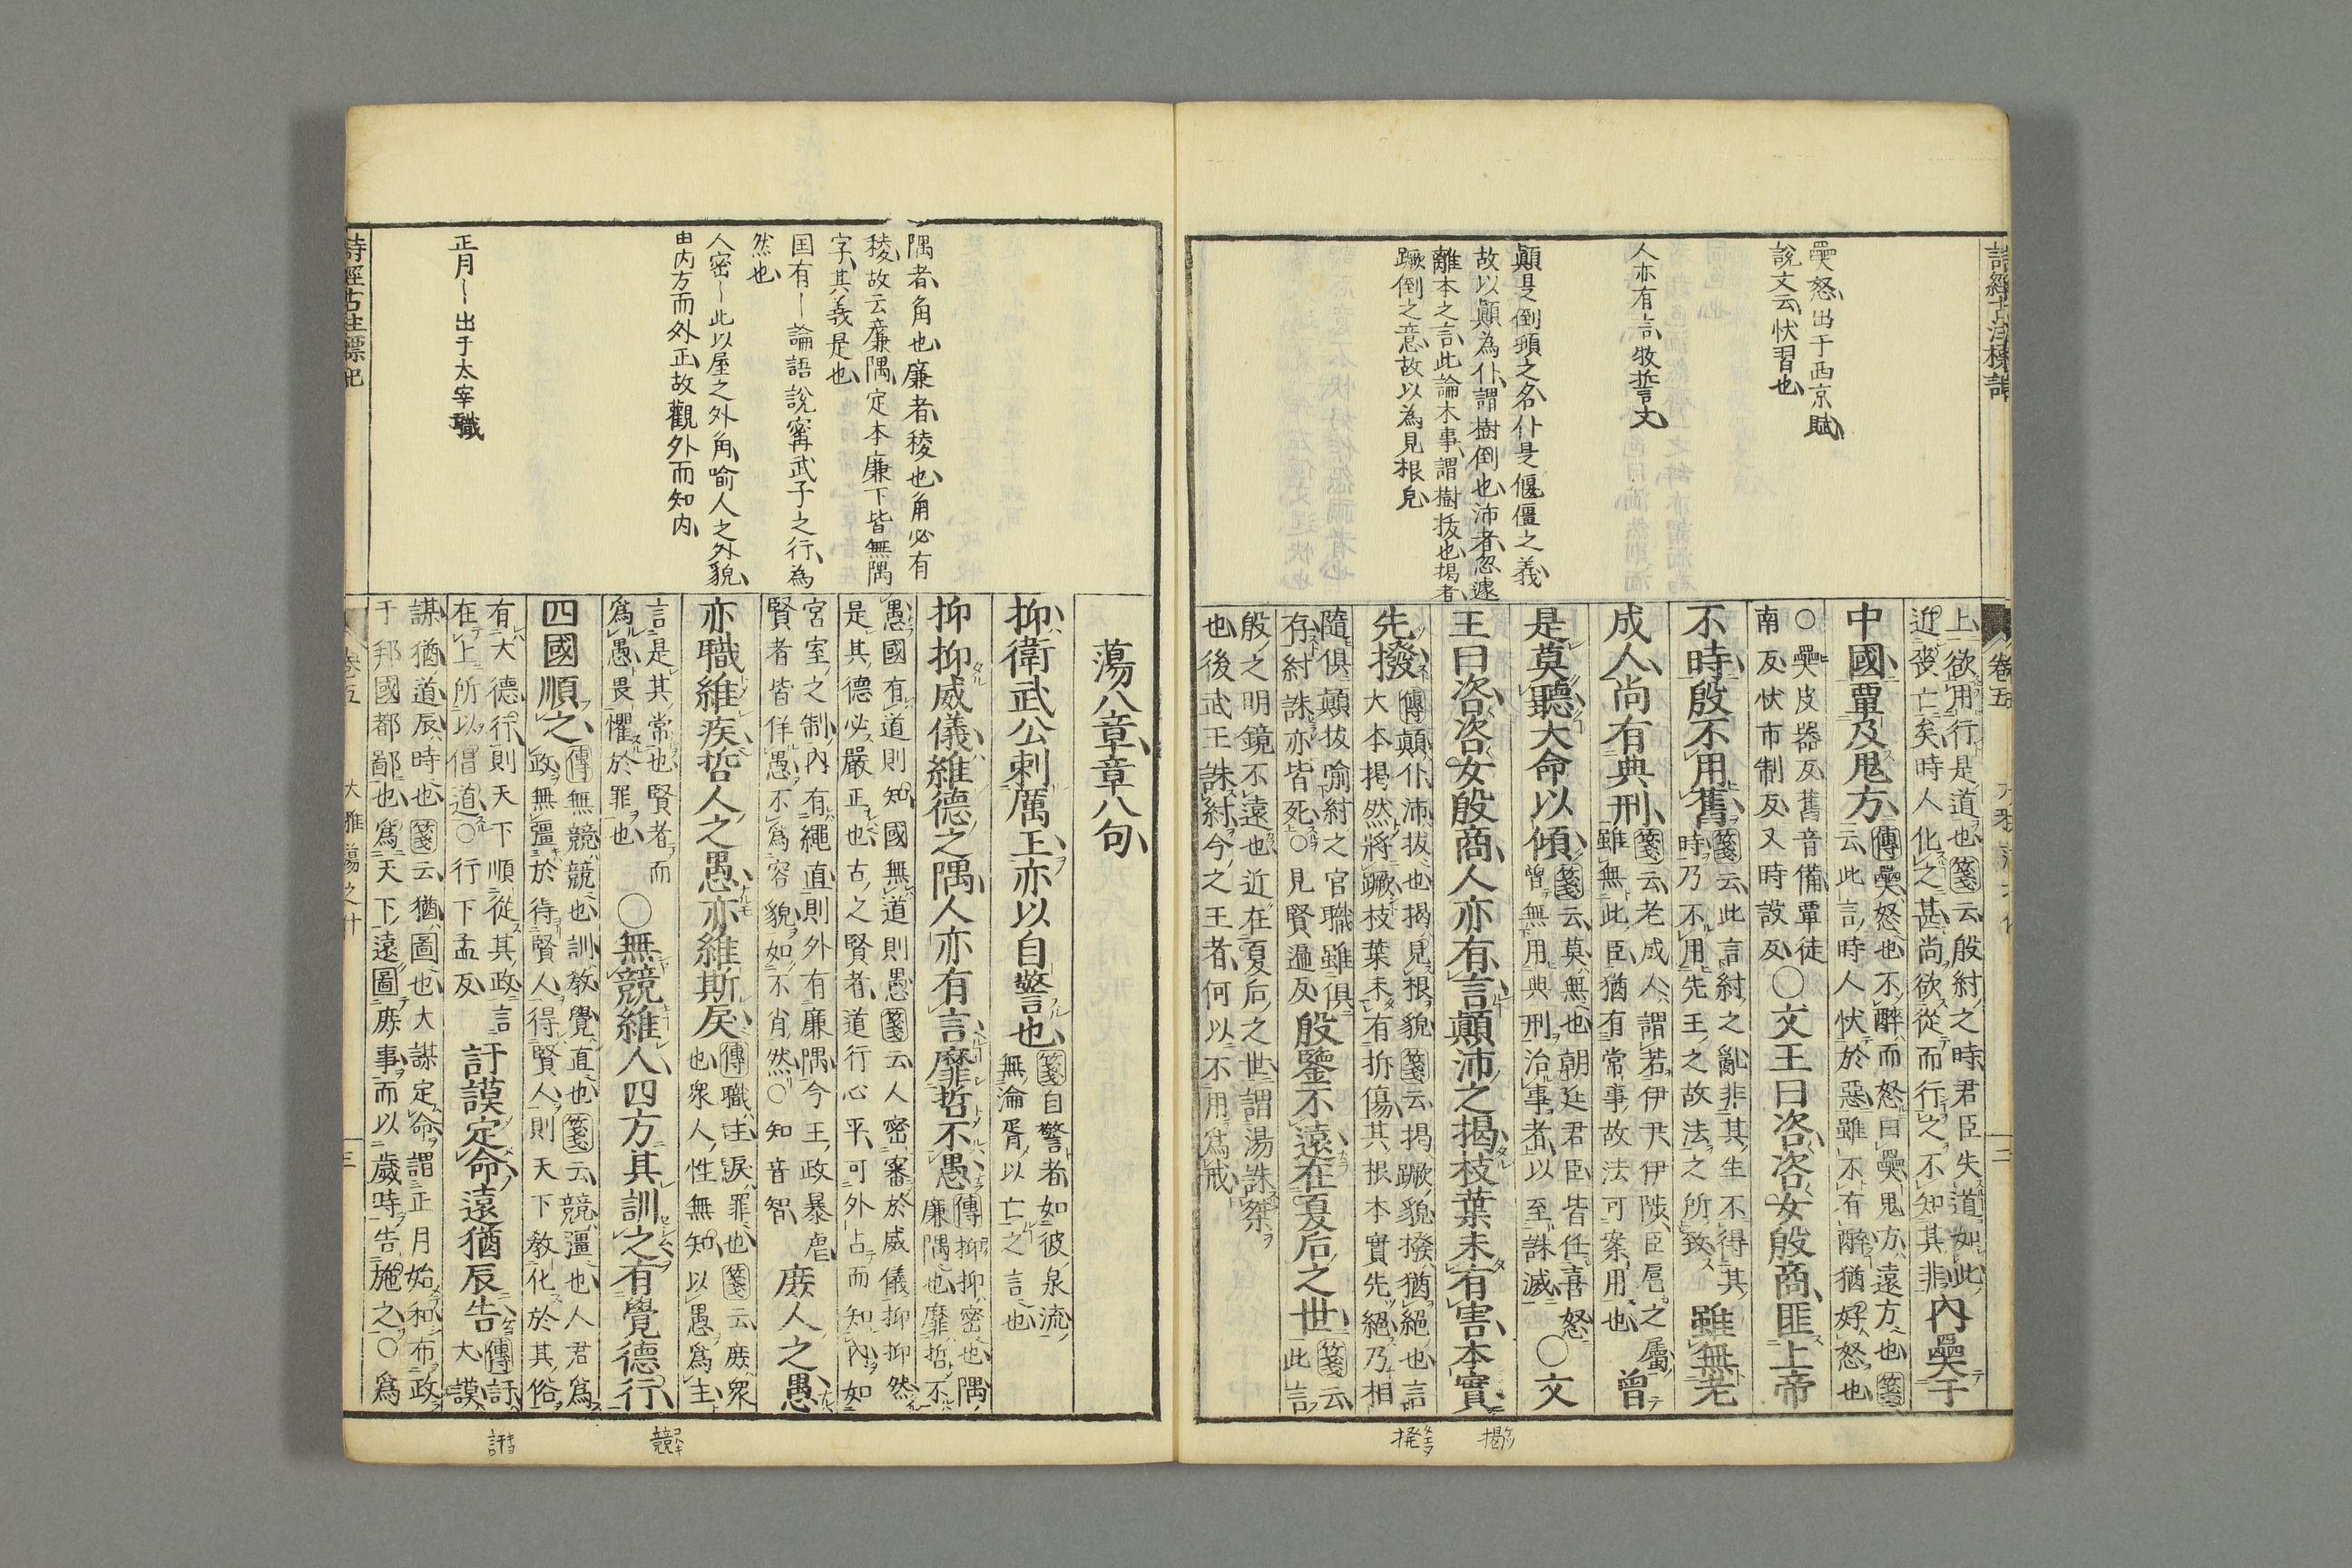 奰怒、出于西京賦、
説文云、忕習也、
人亦有言、牧誓文、
顛是倒頓之名、仆是偃僵之義、
故以顛為仆、謂樹倒也、沛者、忽遽
離本之言、此論木事、謂樹拔也、揭者、
蹶倒之意、故以為見根皃、
卷五
上欲用行是道也箋云殷紂之時君臣失道如此
近喪亡矣時人化之甚尚欲從而行之不知其非
內奰于
中國覃及鬼方
傳奰怒也不醉而怒曰奰鬼方遠方也箋
云此言時人忕於惡雖不有醉猶好怒也
○奰皮器反舊音備覃徒
南反忕市制反又時設反
○文王曰咨咨女殷商匪上帝
不時殷不用舊
箋云此言紂之亂非其生不得其
時乃不用先王之故法之所致
雖無老
成人尚有典刑
箋云老成人謂若伊尹伊陟臣扈之屬
雖無此臣猶有常事故法可案用也
曾
是莫聽大命以傾
箋云莫無也朝廷君臣皆任喜怒
曾無用典刑治事者以至誅滅
○文
王曰咨咨女殷商人亦有言顛沛之揭枝葉未有害本實
先撥
傳顛仆沛拔也揭見根貌箋云揭蹶貌撥猶絕也言
大木揭然將蹶枝葉未有折傷其根本實先絕乃相
隨俱顛拔喻紂之官職雖俱
存紂誅亦皆死○見賢遍反
殷鑒不遠在夏后之世
箋云
此言
殷之明鏡不遠也近在夏后之世謂湯誅桀
也後武王誅紂今之王者何以不用為戒
揭ケツ
撥
隅者、角也、廉者、稜也、角必有
稜、故云廉隅、定本廉下皆無隅
字、其義是也、
国有〡論語説寗武子之行、為
然也、
人密〡此以屋之外角、喻人之外貌、
由内方而外正、故觀外而知内、
正月〡出于太宰職
蕩八章章八句
抑衛武公刺厲王亦以自警也
箋自警者如彼泉流
無淪胥以亡之言也
抑抑威儀維德之隅人亦有言靡哲不愚
傳抑抑密也隅
廉隅也靡哲不
愚國有道則知國無道則愚箋云人密審於威儀抑抑然
是其德必嚴正也古之賢者道行心平可外占而知內如
宮室之制內有繩直則外有廉隅今王政暴虐
賢者皆佯愚不爲容貌如不肖然○知音智
庻人之愚
亦職維疾哲人之愚亦維斯戾
傳職主戾罪也箋云庻眾
也眾人性無知以愚爲主
言是其常也賢者而
爲愚畏懼於罪也
○無競維人四方其訓之有覺德行
四國順之
傳無競競也訓教覺直也箋云競彊也人君爲
政無彊於得賢人得賢人則天下教化於其俗
有大德行則天下順從其政言
在上所以倡道○行下孟反
訏謨定命遠猶辰告
傳訏
大謨
謀猶道辰時也箋云猶圖也大謀定命謂正月始和布政
于邦國都鄙也爲天下遠圖庻事而以歲時告施之○爲
競
訏
詩經古註標記
卷五
大雅蕩之什
三